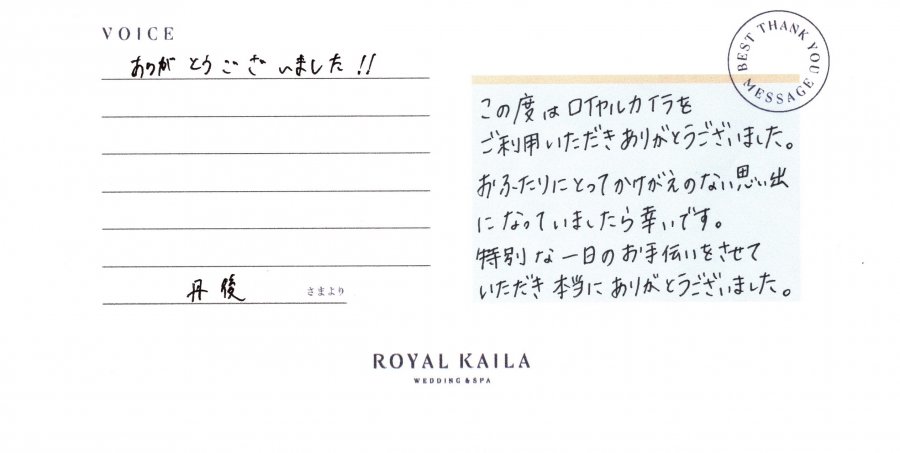 VOICE
ありがとうございました!!
丹後 さまより
BEST THANK YOU MESSAGE
この度はロイヤルカイラを
ご利用いただきありがとうございました。
おふたりにとってかけがえのない思い出
になっていましたら幸いです。
特別な一日のお手伝いをさせて
いただき本当にありがとうございました。
ROYAL KAILA
WEDDING & SPA